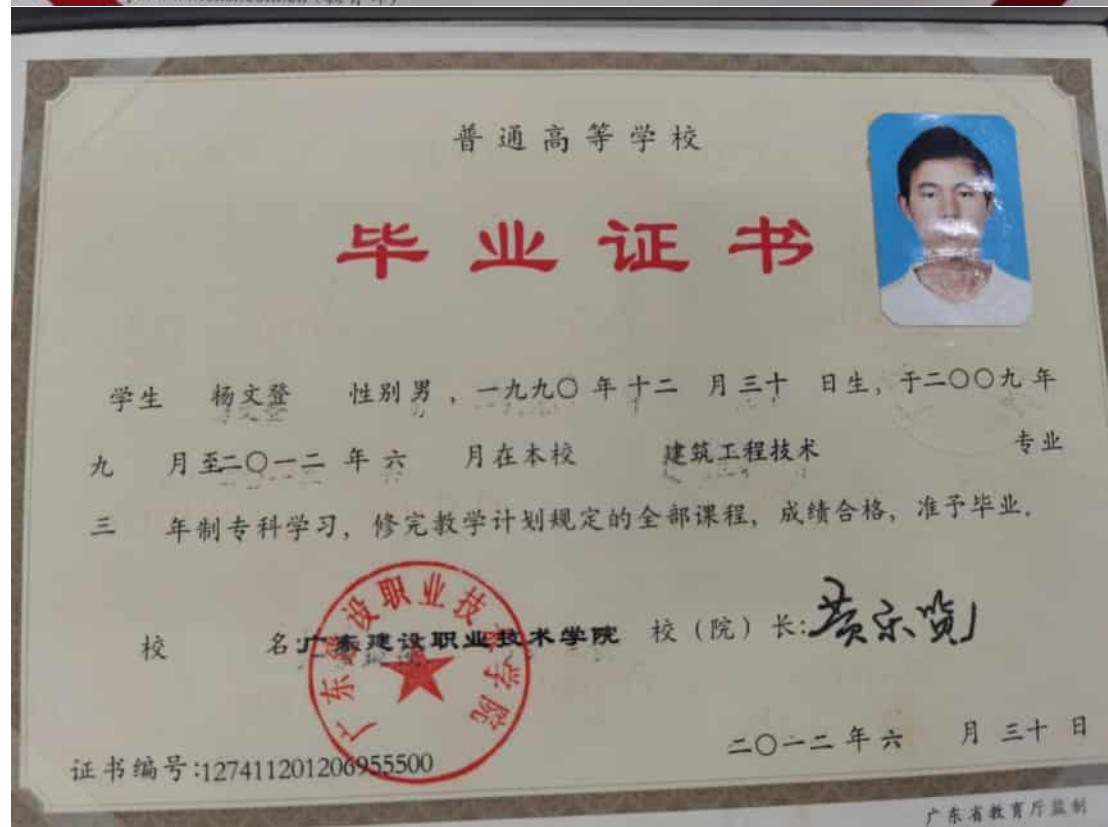 普通高等学校
毕业证书
学生 杨文登 性别 男 , 一九九〇 年 十二 月 三十 日生, 于二〇〇九 年
九 月至二〇一二 年 六 月在本校 建筑工程技术 专业
三 年制专科学习, 修完教学计划规定的全部课程, 成绩合格, 准予毕业.
广东建设职业技术学院
校 名:广东建设职业技术学院 校(院)长:
二〇一二 年 六 月 三十 日
证书编号:127411201206955500
广东省教育厅监制